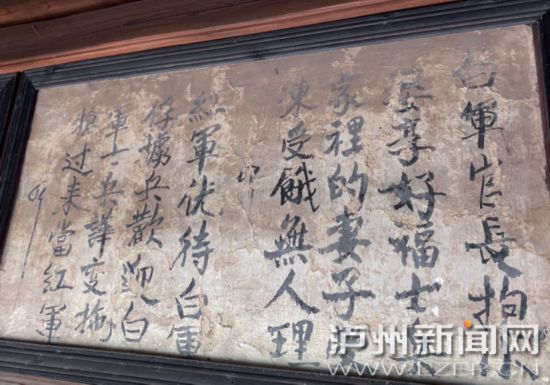 白軍官長抱小
婆享好福士兵
家裡的妻子受
凍受餓無人理
紅軍优待白軍
俘擄兵歡迎白
軍士兵譁变拖
槍过来當红軍
泸州新闻网